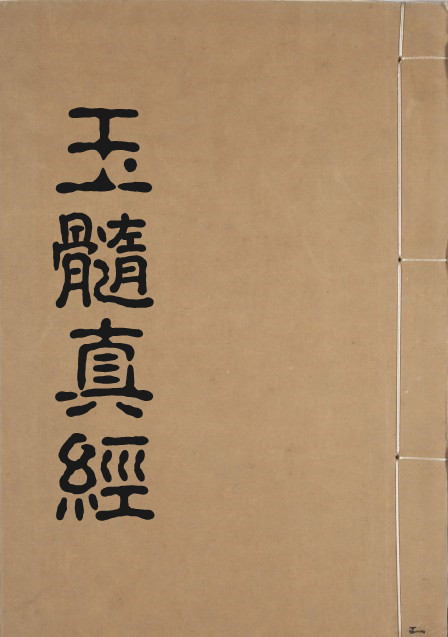 玉髓真經